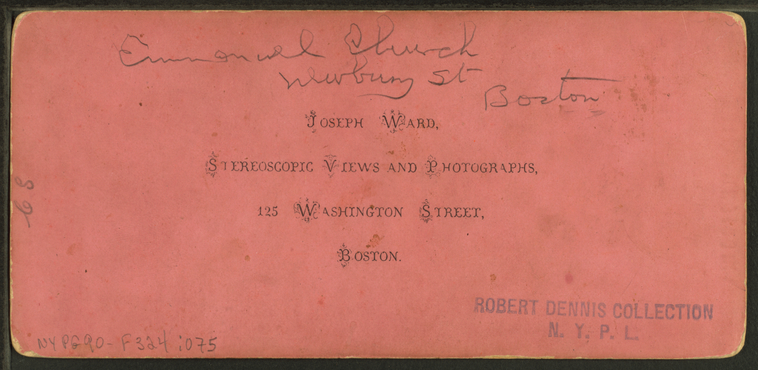 Emmanuel Church
Newbury St
Boston
JOSEPH WARD,
STEREOSCOPIC VIEWS AND PHOTOGRAPHS,
125 WASHINGTON STREET,
BOSTON.
ROBERT DENNIS COLLECTION
N. Y. P. L.
NYPG90-F324 i075